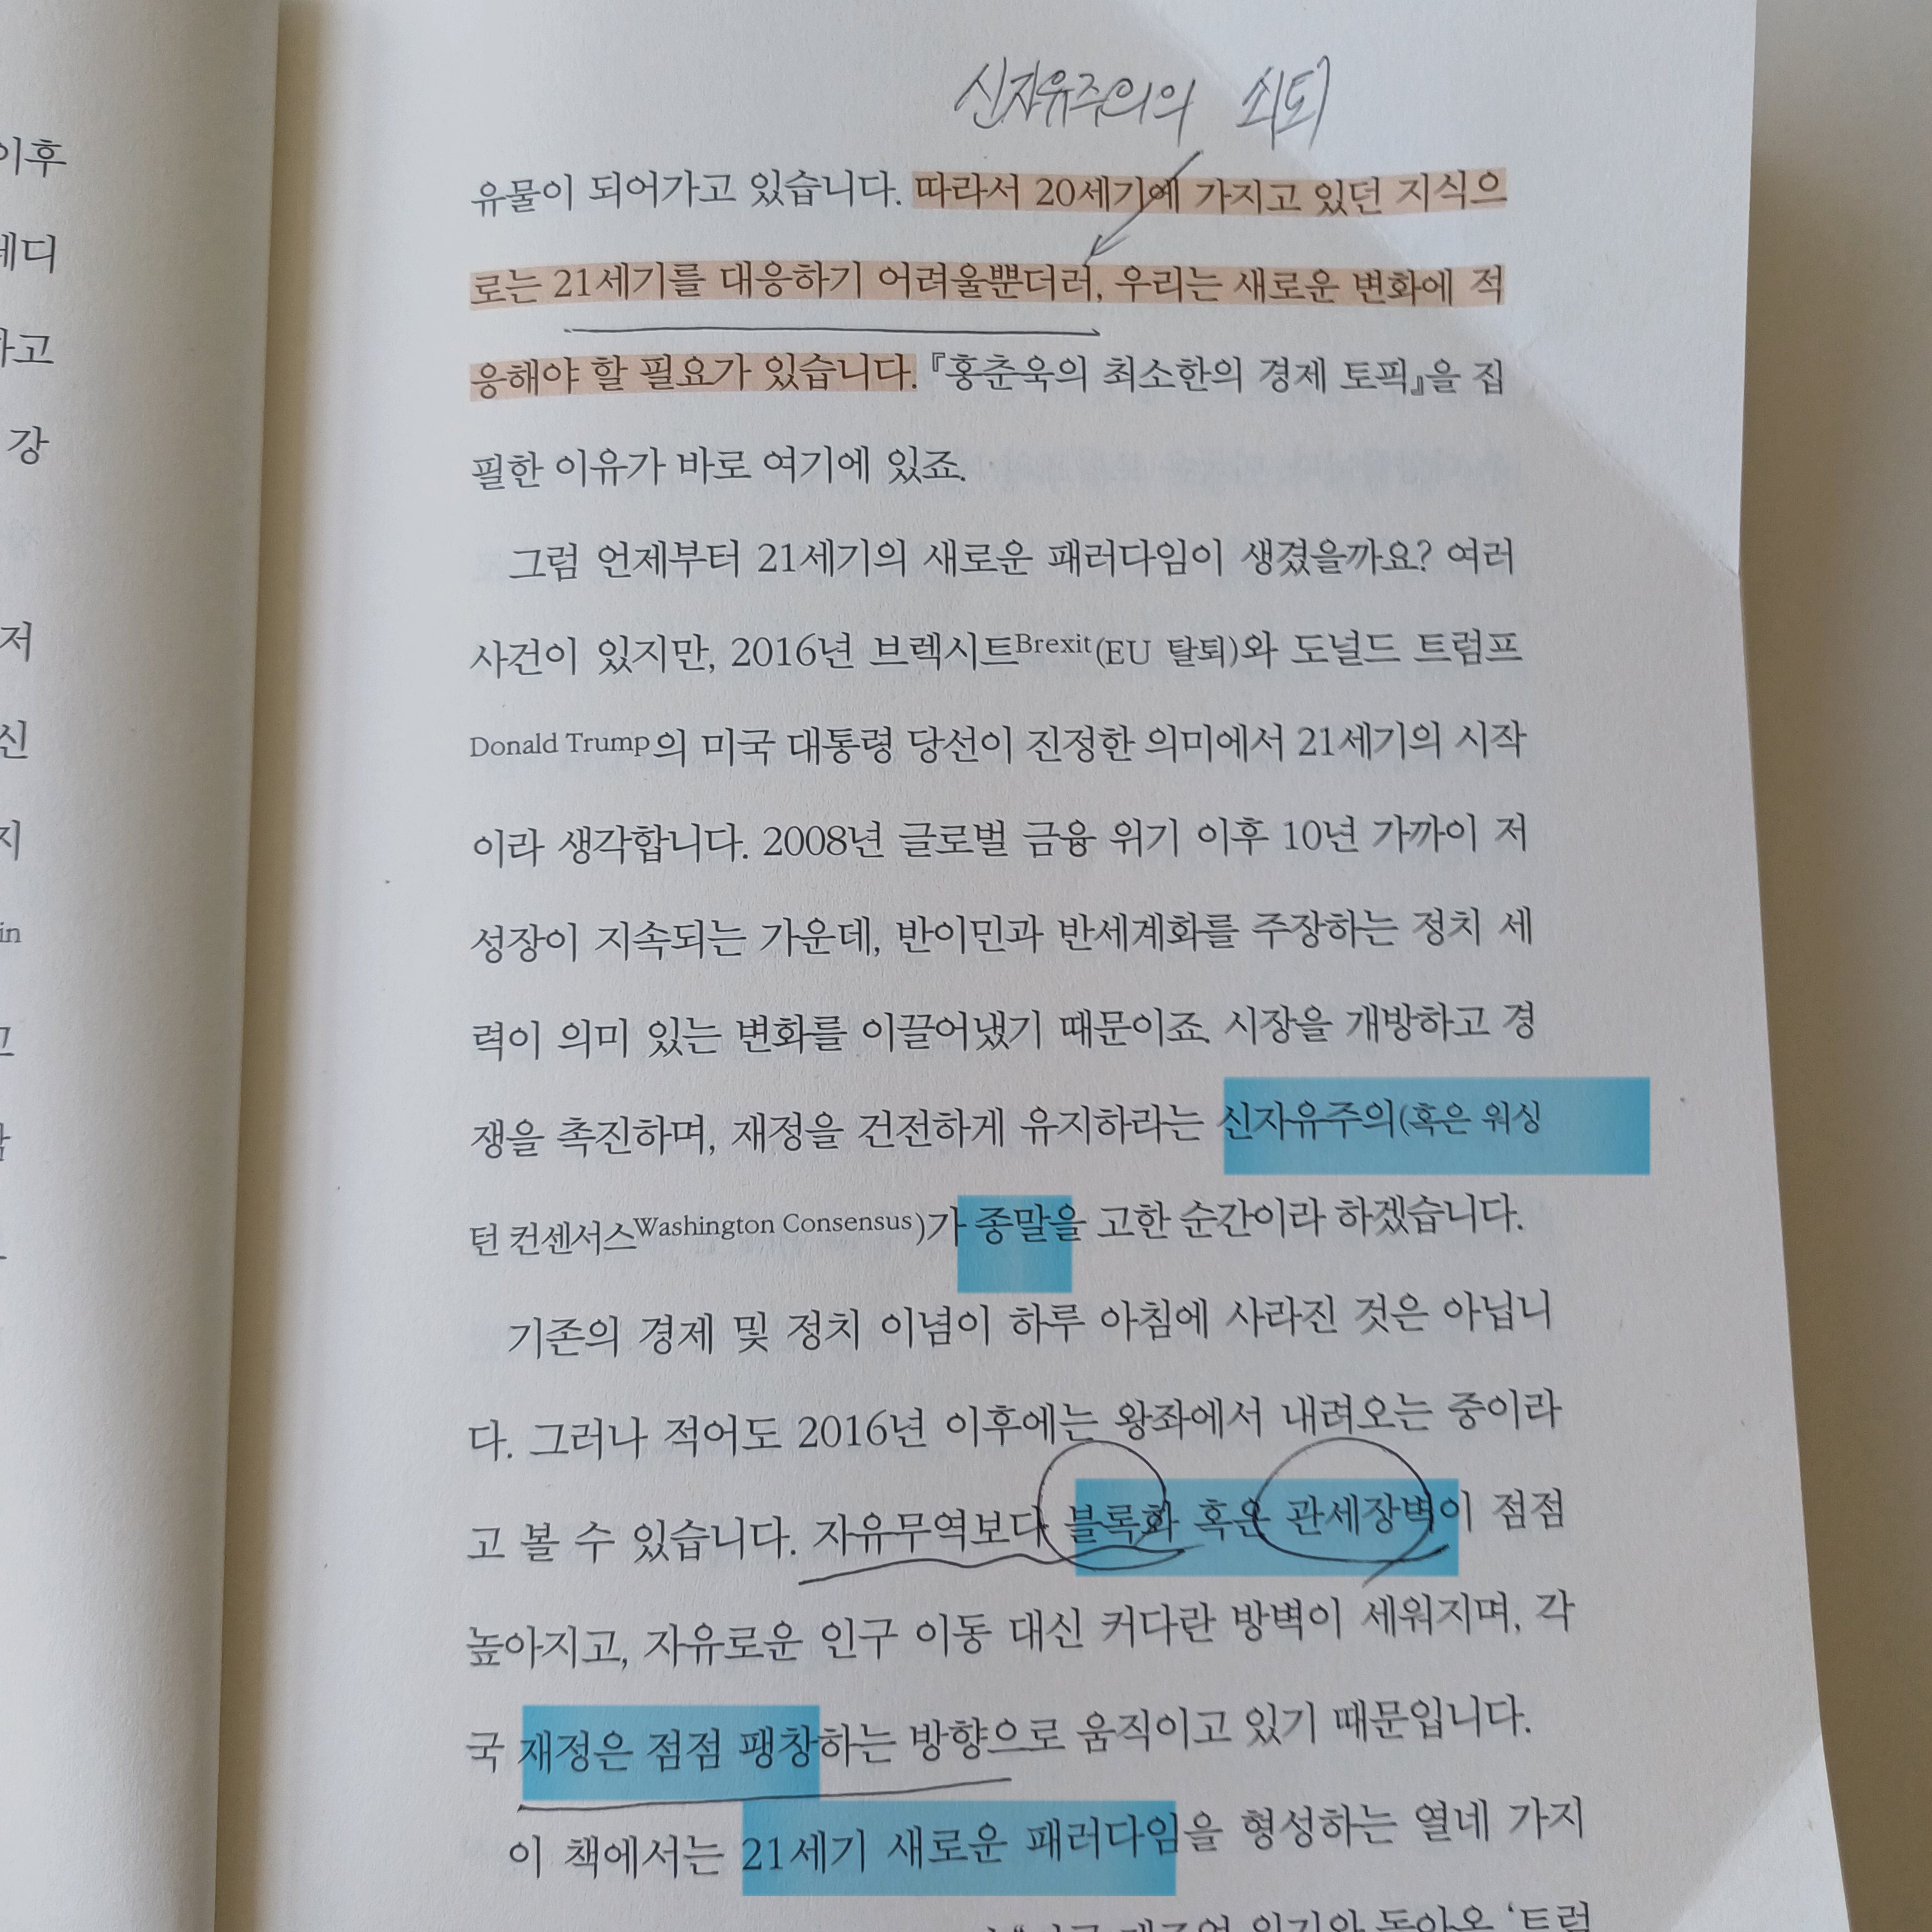 신자유주의의 쇠퇴
유물이 되어가고 있습니다. 따라서 20세기에 가지고 있던 지식으
로는 21세기를 대응하기 어려울뿐더러, 우리는 새로운 변화에 적
응해야 할 필요가 있습니다. 『홍춘욱의 최소한의 경제 토픽』을 집
필한 이유가 바로 여기에 있죠.
그럼 언제부터 21세기의 새로운 패러다임이 생겼을까요? 여러
사건이 있지만, 2016년 브렉시트Brexit(EU 탈퇴)와 도널드 트럼프
Donald Trump의 미국 대통령 당선이 진정한 의미에서 21세기의 시작
이라 생각합니다. 2008년 글로벌 금융 위기 이후 10년 가까이 저
성장이 지속되는 가운데, 반이민과 반세계화를 주장하는 정치 세
력이 의미 있는 변화를 이끌어냈기 때문이죠. 시장을 개방하고 경
쟁을 촉진하며, 재정을 건전하게 유지하라는 신자유주의(혹은 워싱
턴 컨센서스Washington Consensus)가 종말을 고한 순간이라 하겠습니다.
기존의 경제 및 정치 이념이 하루 아침에 사라진 것은 아닙니
다. 그러나 적어도 2016년 이후에는 왕좌에서 내려오는 중이라
고 볼 수 있습니다. 자유무역보다 블록화 혹은 관세장벽이 점점
높아지고, 자유로운 인구 이동 대신 커다란 방벽이 세워지며, 각
국 재정은 점점 팽창하는 방향으로 움직이고 있기 때문입니다.
이 책에서는 21세기 새로운 패러다임을 형성하는 열네 가지
이후
네디
하고
강
저
신
지
in
고